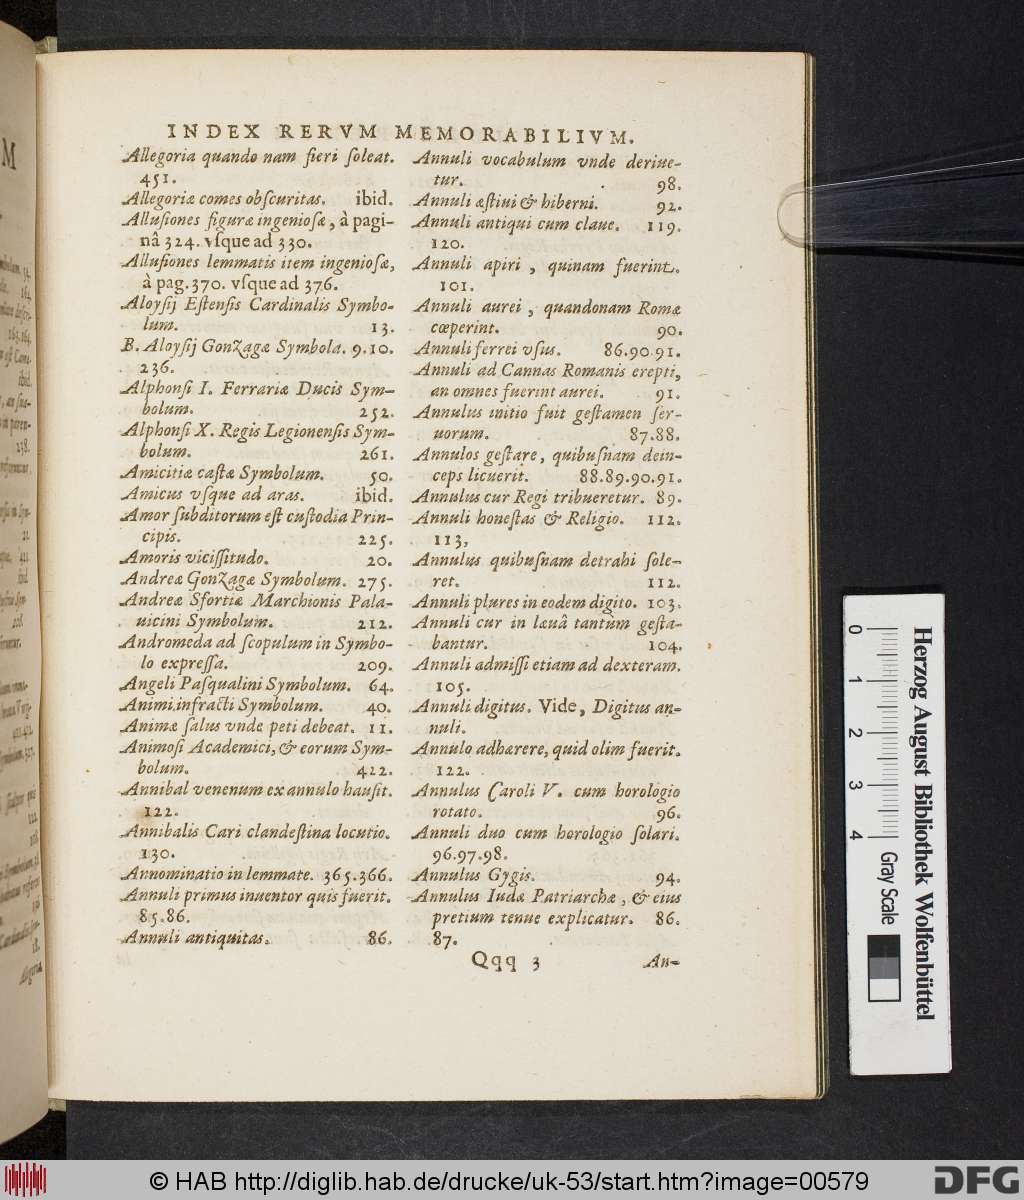 INDEX RERVM MEMORABILIVM.
Allegoria quando nam fieri ſoleat.
451.
Allegoriæ comes obſcuritas. ibid.
Alluſiones figuræ ingenioſæ, à pagi-
nâ 324. vſque ad 330.
Alluſiones lemmatis item ingenioſæ,
à pag. 370. vſque ad 376.
Aloyſij Eſtenſis Cardinalis Symbo-
lum. 13.
B. Aloyſij Gonzagæ Symbola. 9.10.
236.
Alphonſi I. Ferrariæ Ducis Sym-
bolum. 252.
Alphonſi X. Regis Legionenſis Sym-
bolum. 261.
Amicitiæ caſtæ Symbolum. 50.
Amicus vſque ad aras. ibid.
Amor ſubditorum eſt cuſtodia Prin-
cipis. 225.
Amoris viciſſitudo. 20.
Andreæ Gonzagæ Symbolum. 275.
Andreæ Sfortiæ Marchionis Pala-
uicini Symbolum. 212.
Andromeda ad ſcopulum in Symbo-
lo expreſſa. 209.
Angeli Paſqualini Symbolum. 64.
Animi infracti Symbolum. 40.
Animæ ſalus vnde peti debeat. 11.
Animoſi Academici, & eorum Sym-
bolum. 422.
Annibal venenum ex annulo hauſit.
122.
Annibalis Cari clandeſtina locutio.
130.
Annominatio in lemmate. 365.366.
Annuli primus inuentor quis fuerit.
85.86.
Annuli antiquitas. 86.
Annuli vocabulum vnde deriue-
tur. 98.
Annuli æſtiui & hiberni. 92.
Annuli antiqui cum claue. 119.
120.
Annuli apiri, quinam fuerint.
101.
Annuli aurei, quandonam Romæ
cœperint. 90.
Annuli ferrei vſus. 86.90.91.
Annuli ad Cannas Romanis erepti,
an omnes fuerint aurei. 91.
Annulus initio fuit geſtamen ſer-
uorum. 87.88.
Annulos geſtare, quibuſnam dein-
ceps licuerit. 88.89.90.91.
Annulus cur Regi tribueretur. 89.
Annuli honeſtas & Religio. 112.
113,
Annulus quibuſnam detrahi ſole-
ret. 112.
Annuli plures in eodem digito. 103.
Annuli cur in læuâ tantùm geſta-
bantur. 104.
Annuli admiſſi etiam ad dexteram.
105.
Annuli digitus. Vide, Digitus an-
nuli.
Annulo adhærere, quid olim fuerit.
122.
Annulus Caroli V. cum horologio
rotato. 96.
Annuli duo cum horologio ſolari.
96.97.98.
Annulus Gygis. 94.
Annulus Iudæ Patriarchæ, & eius
pretium tenue explicatur. 86.
87.
Qqq 3 An-
0 1 2 3 4
Herzog August Bibliothek Wolfenbüttel
Gray Scale
© HAB http://diglib.hab.de/drucke/uk-53/start.htm?image=00579
DFG